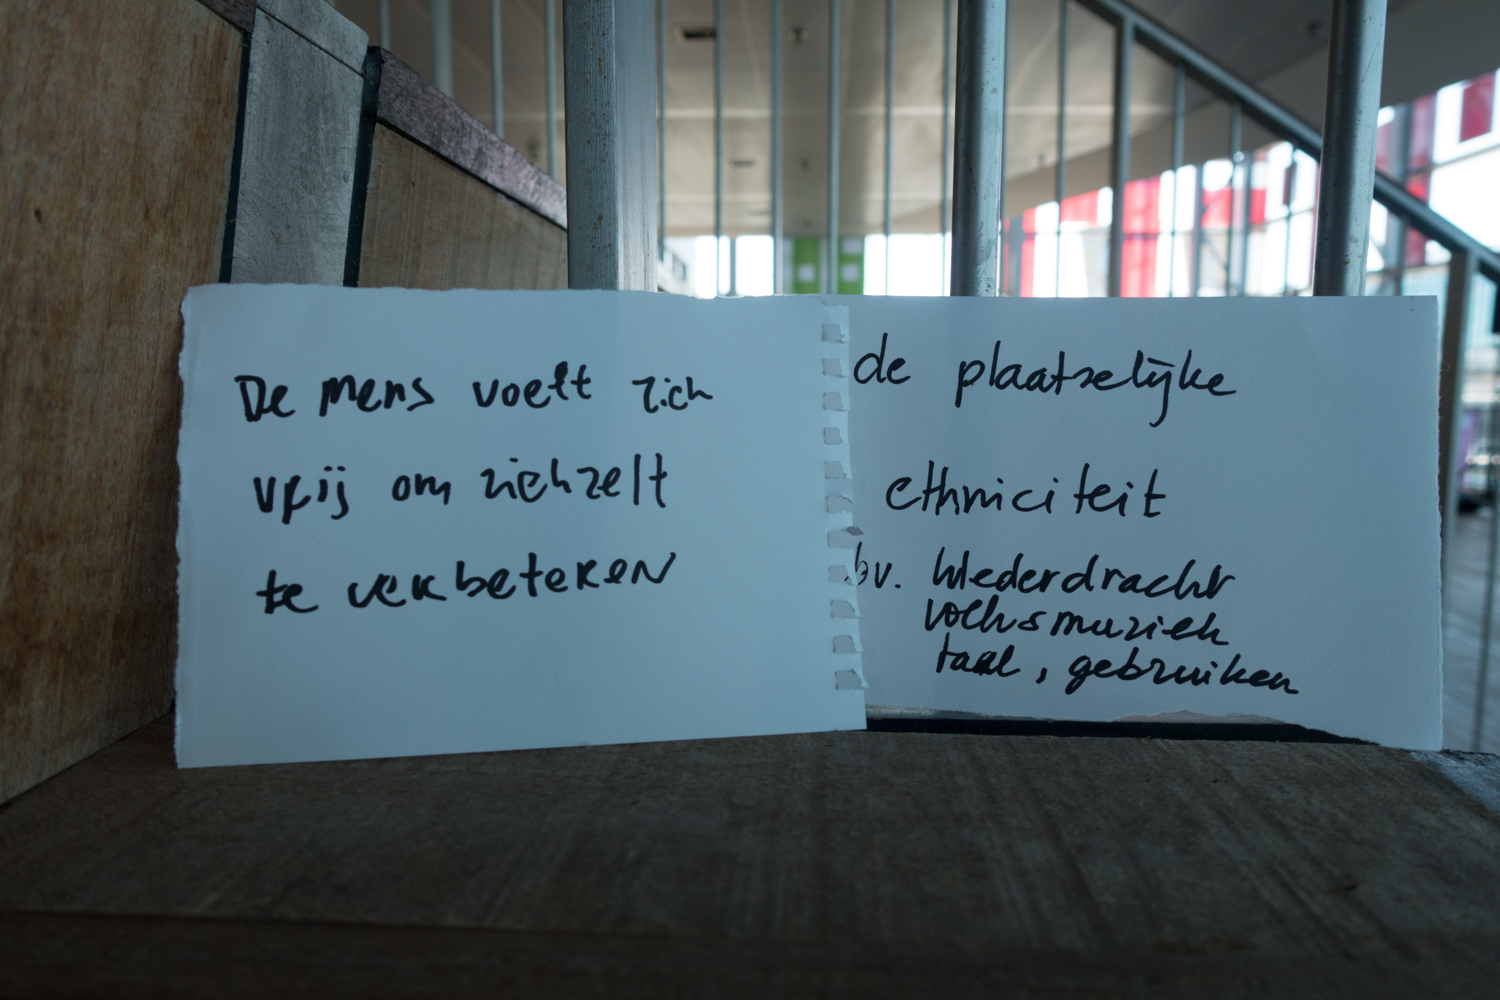 De mens voelt zich
vrij om zichzelf
te verbeteren
de plaatselijke
ethniciteit
bv. klederdracht
volksmuziek
taal, gebruiken